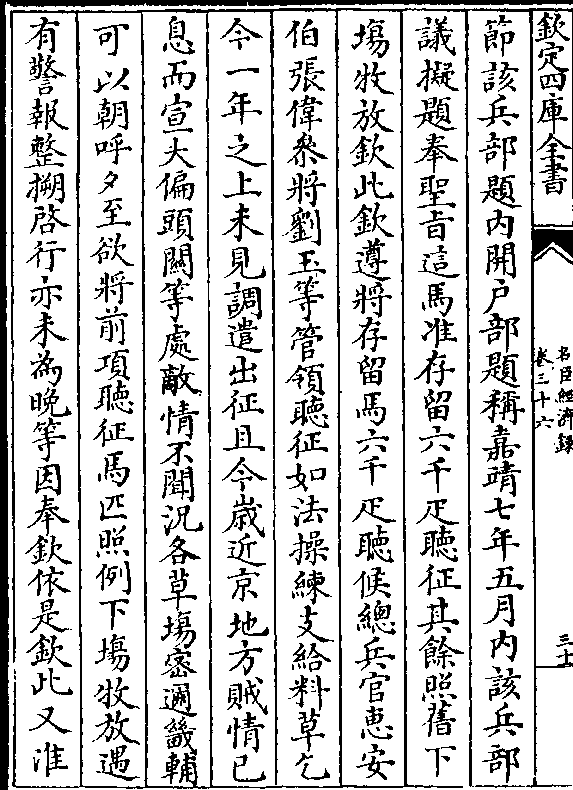 欽定四庫全書
名臣經濟錄
卷三十六
三十
節該兵部題内開户部題稱嘉靖七年五月内該兵部
議擬題奉聖旨這馬准存留六千疋聽征其餘照舊下
塲牧放欽此欽遵將存留馬六千疋聽候總兵官惠安
伯張偉叅將劉玉等管領聽征如法操練支給料草乞
今一年之上未見調遣出征且今歳近京地方賊情已
息而宣大偏頭關等處敵情不聞況各草塲宻邇畿輔
可以朝呼夕至欲將前項聽征馬匹照例下塲牧放遇
有警報整搠啓行亦未為晩等因奉欽依是欽此又准